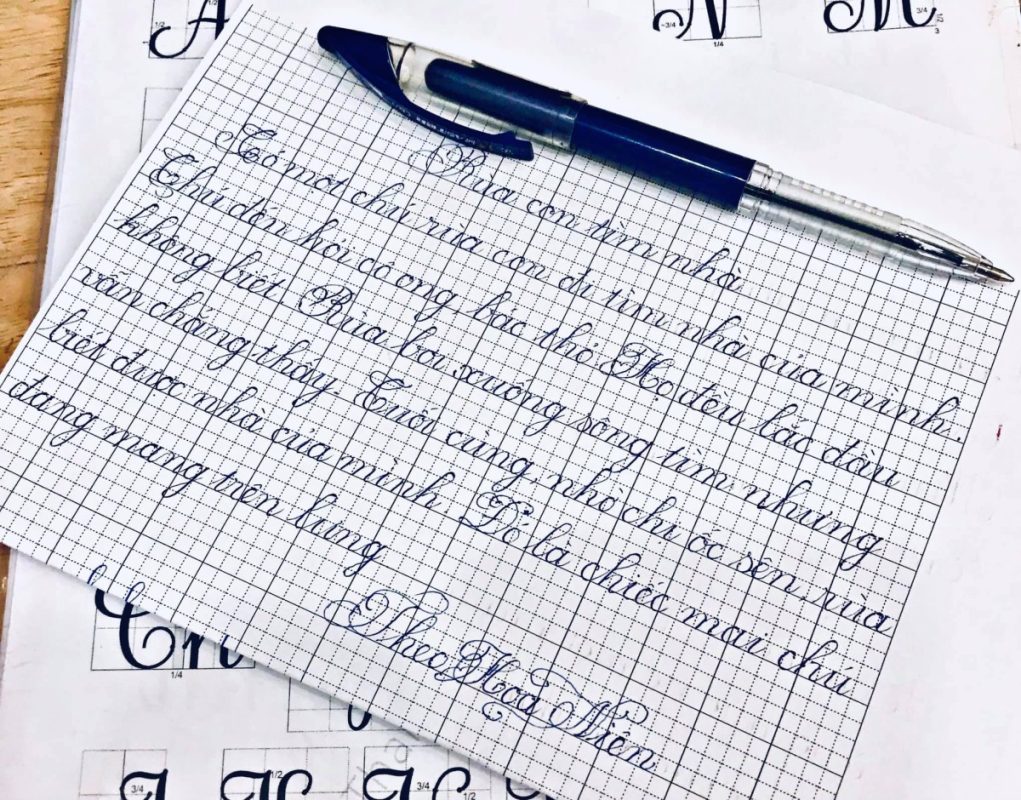 A N M
Rùa con tìm nhà
Có một chú rùa con đi tìm nhà của mình.
Chú đến hỏi cô ong, bác thỏ. Họ đều lắc đầu
không biết. Rùa bơi xuống sông tìm nhưng
vẫn chẳng thấy. Cuối cùng, nhờ chị ốc sên, rùa
biết được nhà của mình. Đó là chiếc mai chú
đang mang trên lưng
Theo Hoa Niên